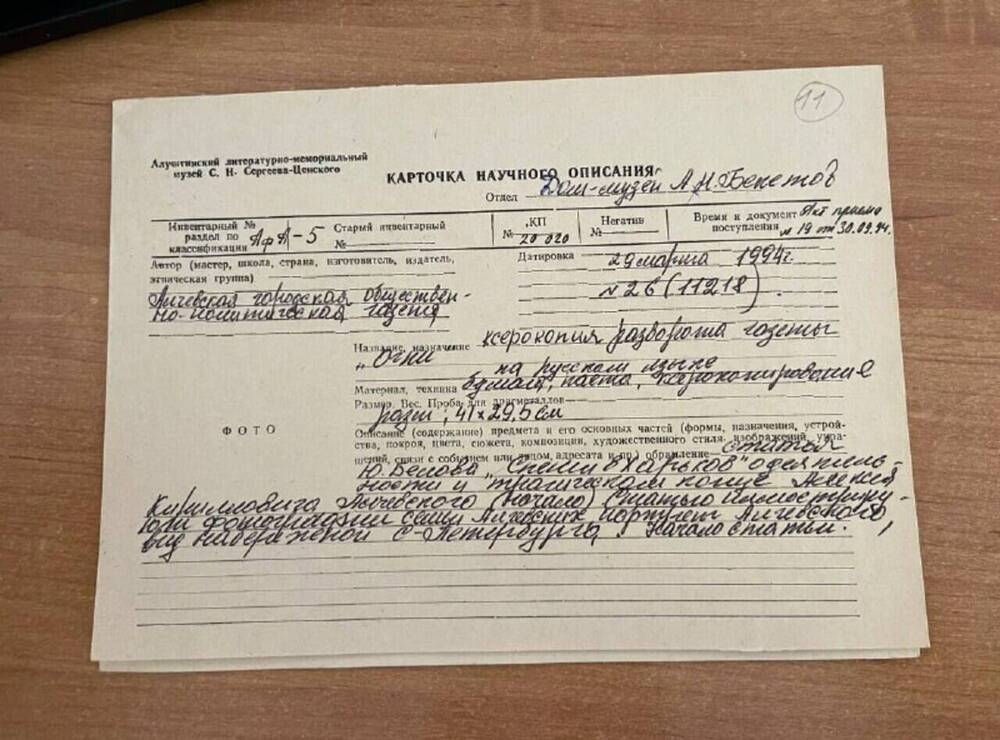 11
Алуштинский литературно-мемориальный
музей С. Н. Сергеева-Ценского
КАРТОЧКА НАУЧНОГО ОПИСАНИЯ
Отдел Дом-музей А.Н.Бекетов
Инвентарный № раздел по классификации АфА-5
Старый инвентарный №
КП № 20 020
Негатив №
Время и документ поступления Акт приема № 19 от 30.09.94г.
Автор (мастер, школа, страна, изготовитель, издатель,
этническая группа)
Алчевская городская обществен-
но-политическая газета
Датировка 29 марта 1994г.
№ 26 (11218)
Название, назначение ксерокопия разворота газеты
„Огни на русском языке
Материал, техника бумага, паста, ксерокопирование
Размер. Вес. Проба для драгметаллов
разм; 41х29,5 см
ФОТО
Описание (содержание) предмета и его основных частей (формы, назначения, устрой-
ства, покроя, цвета, сюжета, композиции, художественного стиля, изображений, укра-
шений, связи с событием или лицом, адресата и пр.) обрамление статья
Ю.Белова „Спеши в Харьков" о деятель-
ности и трагическом конце Алексея
Кирилловича Алчевского (Начало) Статью иллюстриру-
ют фотографии семьи Алчевских портрет Алчевского,
вид набережной С-Петербурга, Начало статьи.